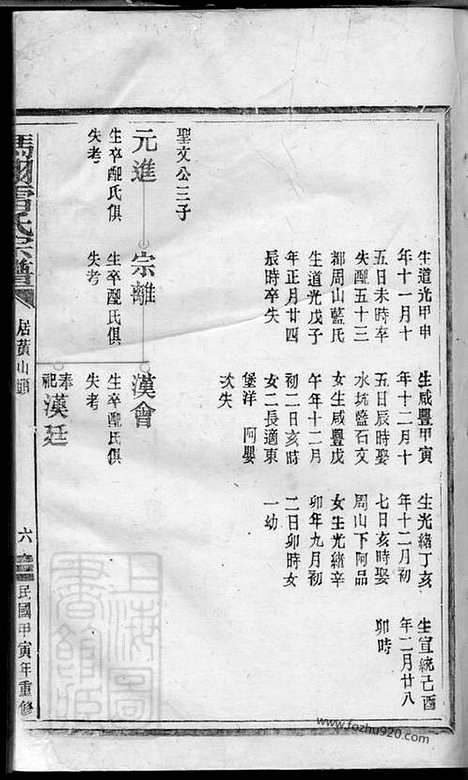 生道光甲申
年十一月十
五日未時卒
失配五十三
都周山藍氏
生道光戊子
年正月廿四
辰時卒失
生咸豐甲寅
年十二月十
五日辰時娶
水坑藍石文
女生咸豐戊
午年十二月
初二日亥時
女二長適東
堡洋 阿嬰
次失
生光緒丁亥
年十二月初
七日亥時娶
周山下阿品
女生光緒辛
卯年九月初
二日卯時女
一幼
生宣統己酉
年二月廿八
卯時
聖文公三子
元進
生卒配氏俱
失考
宗離
生卒配氏俱
失考
漢會
生卒配氏俱
失考
奉祀
漢廷
雷氏宗譜
居黃山頭
六
民國甲寅年重修
上海圖書館藏
www.fozhu920.com